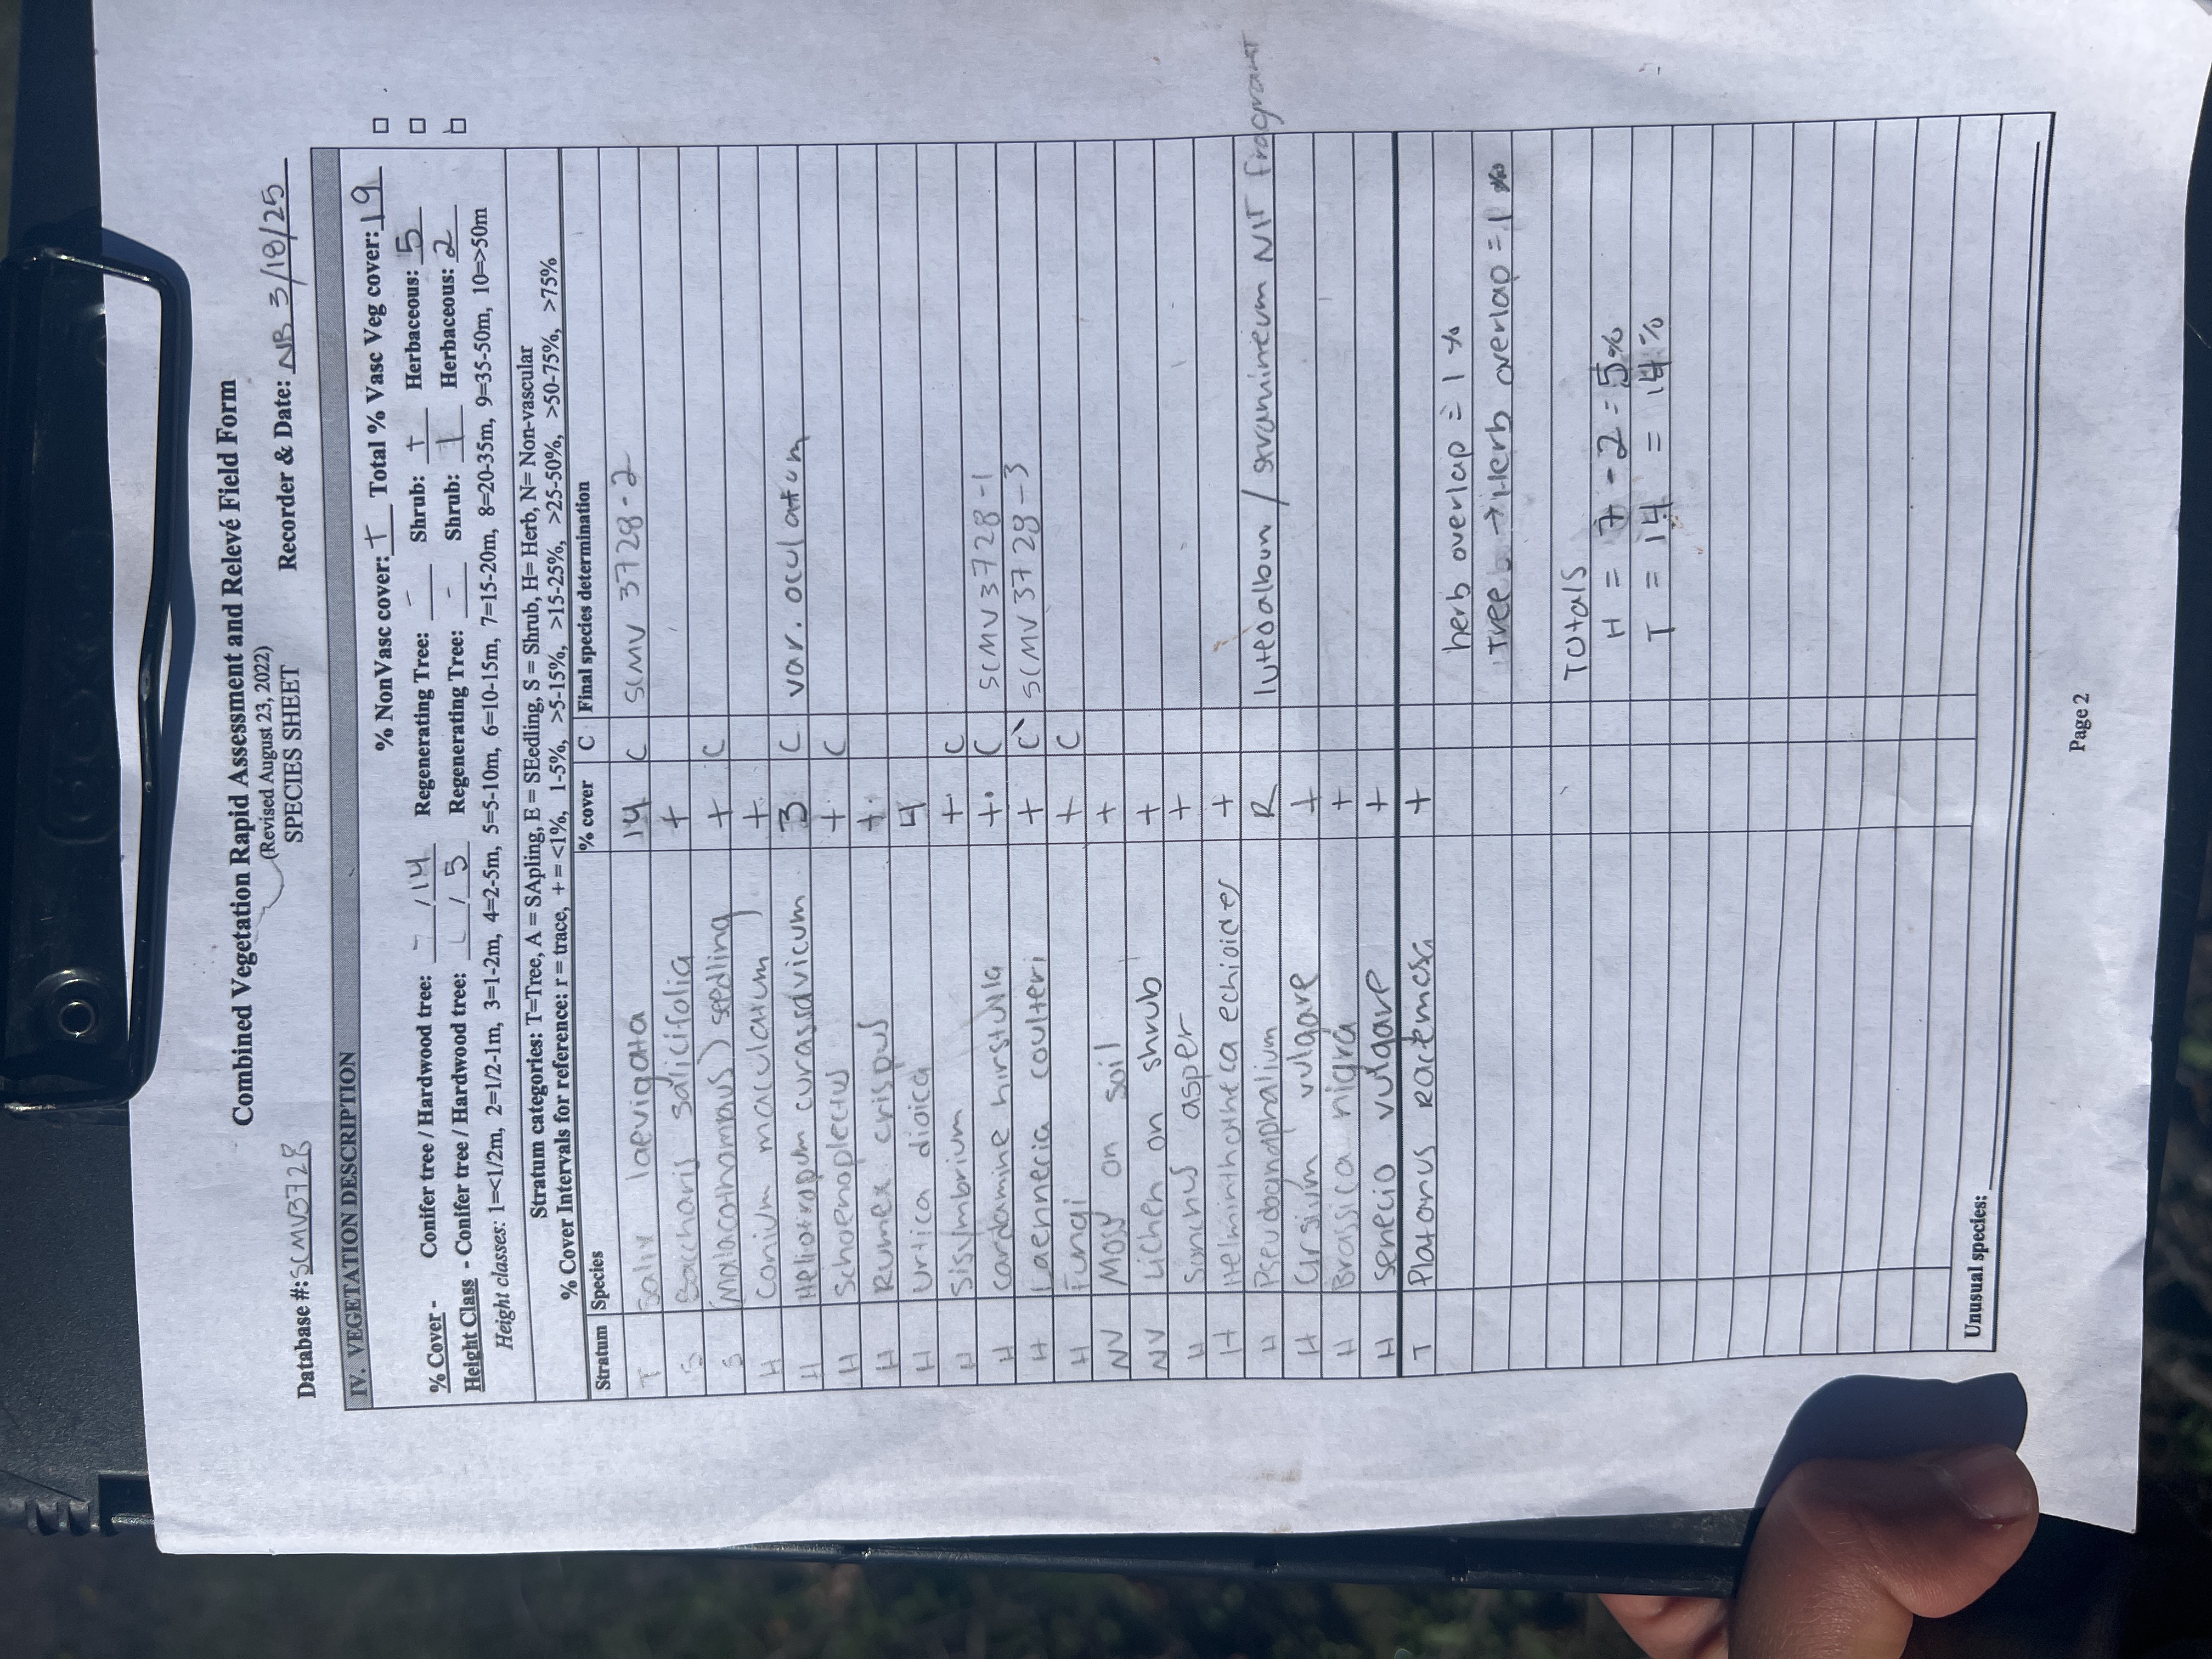 Combined Vegetation Rapid Assessment and Relevé Field Form
(Revised August 23, 2022)
SPECIES SHEET
Database #: SCMV3728 Recorder & Date: NB 3/18/25
IV. VEGETATION DESCRIPTION
% NonVasc cover: + Total % Vasc Veg cover: 19
% Cover - Conifer tree / Hardwood tree: - / 14 Regenerating Tree: - Shrub: + Herbaceous: 5
Height Class - Conifer tree / Hardwood tree: / 5 Regenerating Tree: - Shrub: 1 Herbaceous: 2
Height classes: 1=<1/2m, 2=1/2-1m, 3=1-2m, 4=2-5m, 5=5-10m, 6=10-15m, 7=15-20m, 8=20-35m, 9=35-50m, 10=>50m
Stratum categories: T=Tree, A = SApling, E = SEedling, S = Shrub, H= Herb, N= Non-vascular
% Cover Intervals for reference: r = trace, + = <1%, 1-5%, >5-15%, >15-25%, >25-50%, >50-75%, >75%
Stratum Species % cover C Final species determination
T Salix laevigata 14 C SCMV 3728-2
S Baccharis salicifolia +
S (Malacothamnus) seedling + C
H Conium maculatum +
H Heliotropum curassavicum 3 C var. occulatum
H Schoenoplectus + C
H Rumex crispus +
H Urtica dioica 4
H Sisymbrium + C
H Cardamine hirsuta + C SCMV3728-1
H Laennecia coulteri + C SCMV3728-3
H Fungi + C
NV Moss on soil +
NV Lichen on shrub +
H Sonchus asper +
H Helminthotheca echioides +
H Pseudognaphalium R luteoalbum / stramineum NOT fragrant
H Cirsium vulgare +
H Brassica nigra +
H Senecio vulgare +
T Platanus racemosa +
herb overlap = 1 %
Tree → Herb overlap = 1 %
Totals
H = 7 - 2 = 5%
T = 14 = 14%
Unusual species:
Page 2